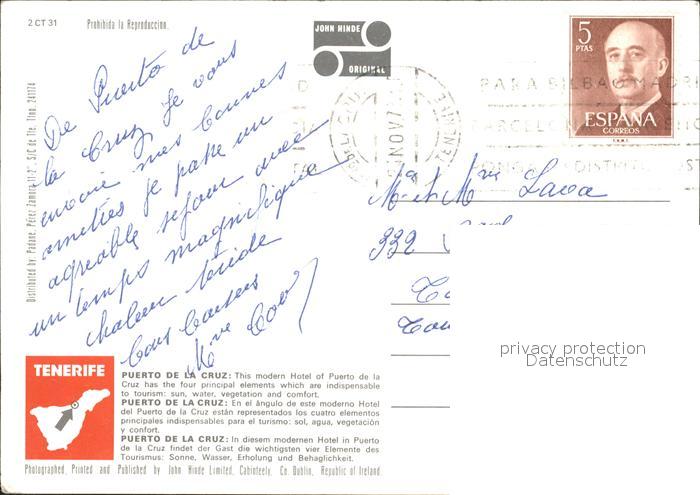 2 CT 31
Prohibida la Reproduccion.
JOHN HINDE
ORIGINAL
5
PTAS
ESPAÑA
CORREOS
De Puerto de
la Cruz, je vous
envoie mes bonnes
amitiés je passe un
agréable séjour avec
un temps magnifique
chaleur tiède
Bons baisers
Mme
M. et Mme
332
privacy protection
Datenschutz
Distributed by: Padane, Pérez Zamora 11-2°. S/C de Tfe. Tfno. 241174
TENERIFE
PUERTO DE LA CRUZ: This modern Hotel of Puerto de la
Cruz has the four principal elements which are indispensable
to tourism: sun, water, vegetation and comfort.
PUERTO DE LA CRUZ: En el ángulo de este moderno Hotel
del Puerto de la Cruz están representados los cuatro elementos
principales indispensables para el turismo: sol, agua, vegetación
y confort.
PUERTO DE LA CRUZ: In diesem modernen Hotel in Puerto
de la Cruz findet der Gast die wichtigsten vier Elemente des
Tourismus: Sonne, Wasser, Erholung und Behaglichkeit.
Photographed, Printed and Published by John Hinde Limited, Cabinteely, Co. Dublin, Republic of Ireland